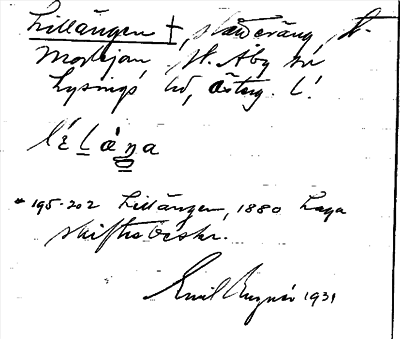 Lillängen †, slåtteräng, St.
Morkojan, St. Åby sn
Lysings hd, Östg. l.
lélaŋa
* 195-202 Lillängen, 1880 Laga
skiftesbeskr.
Emil 1931